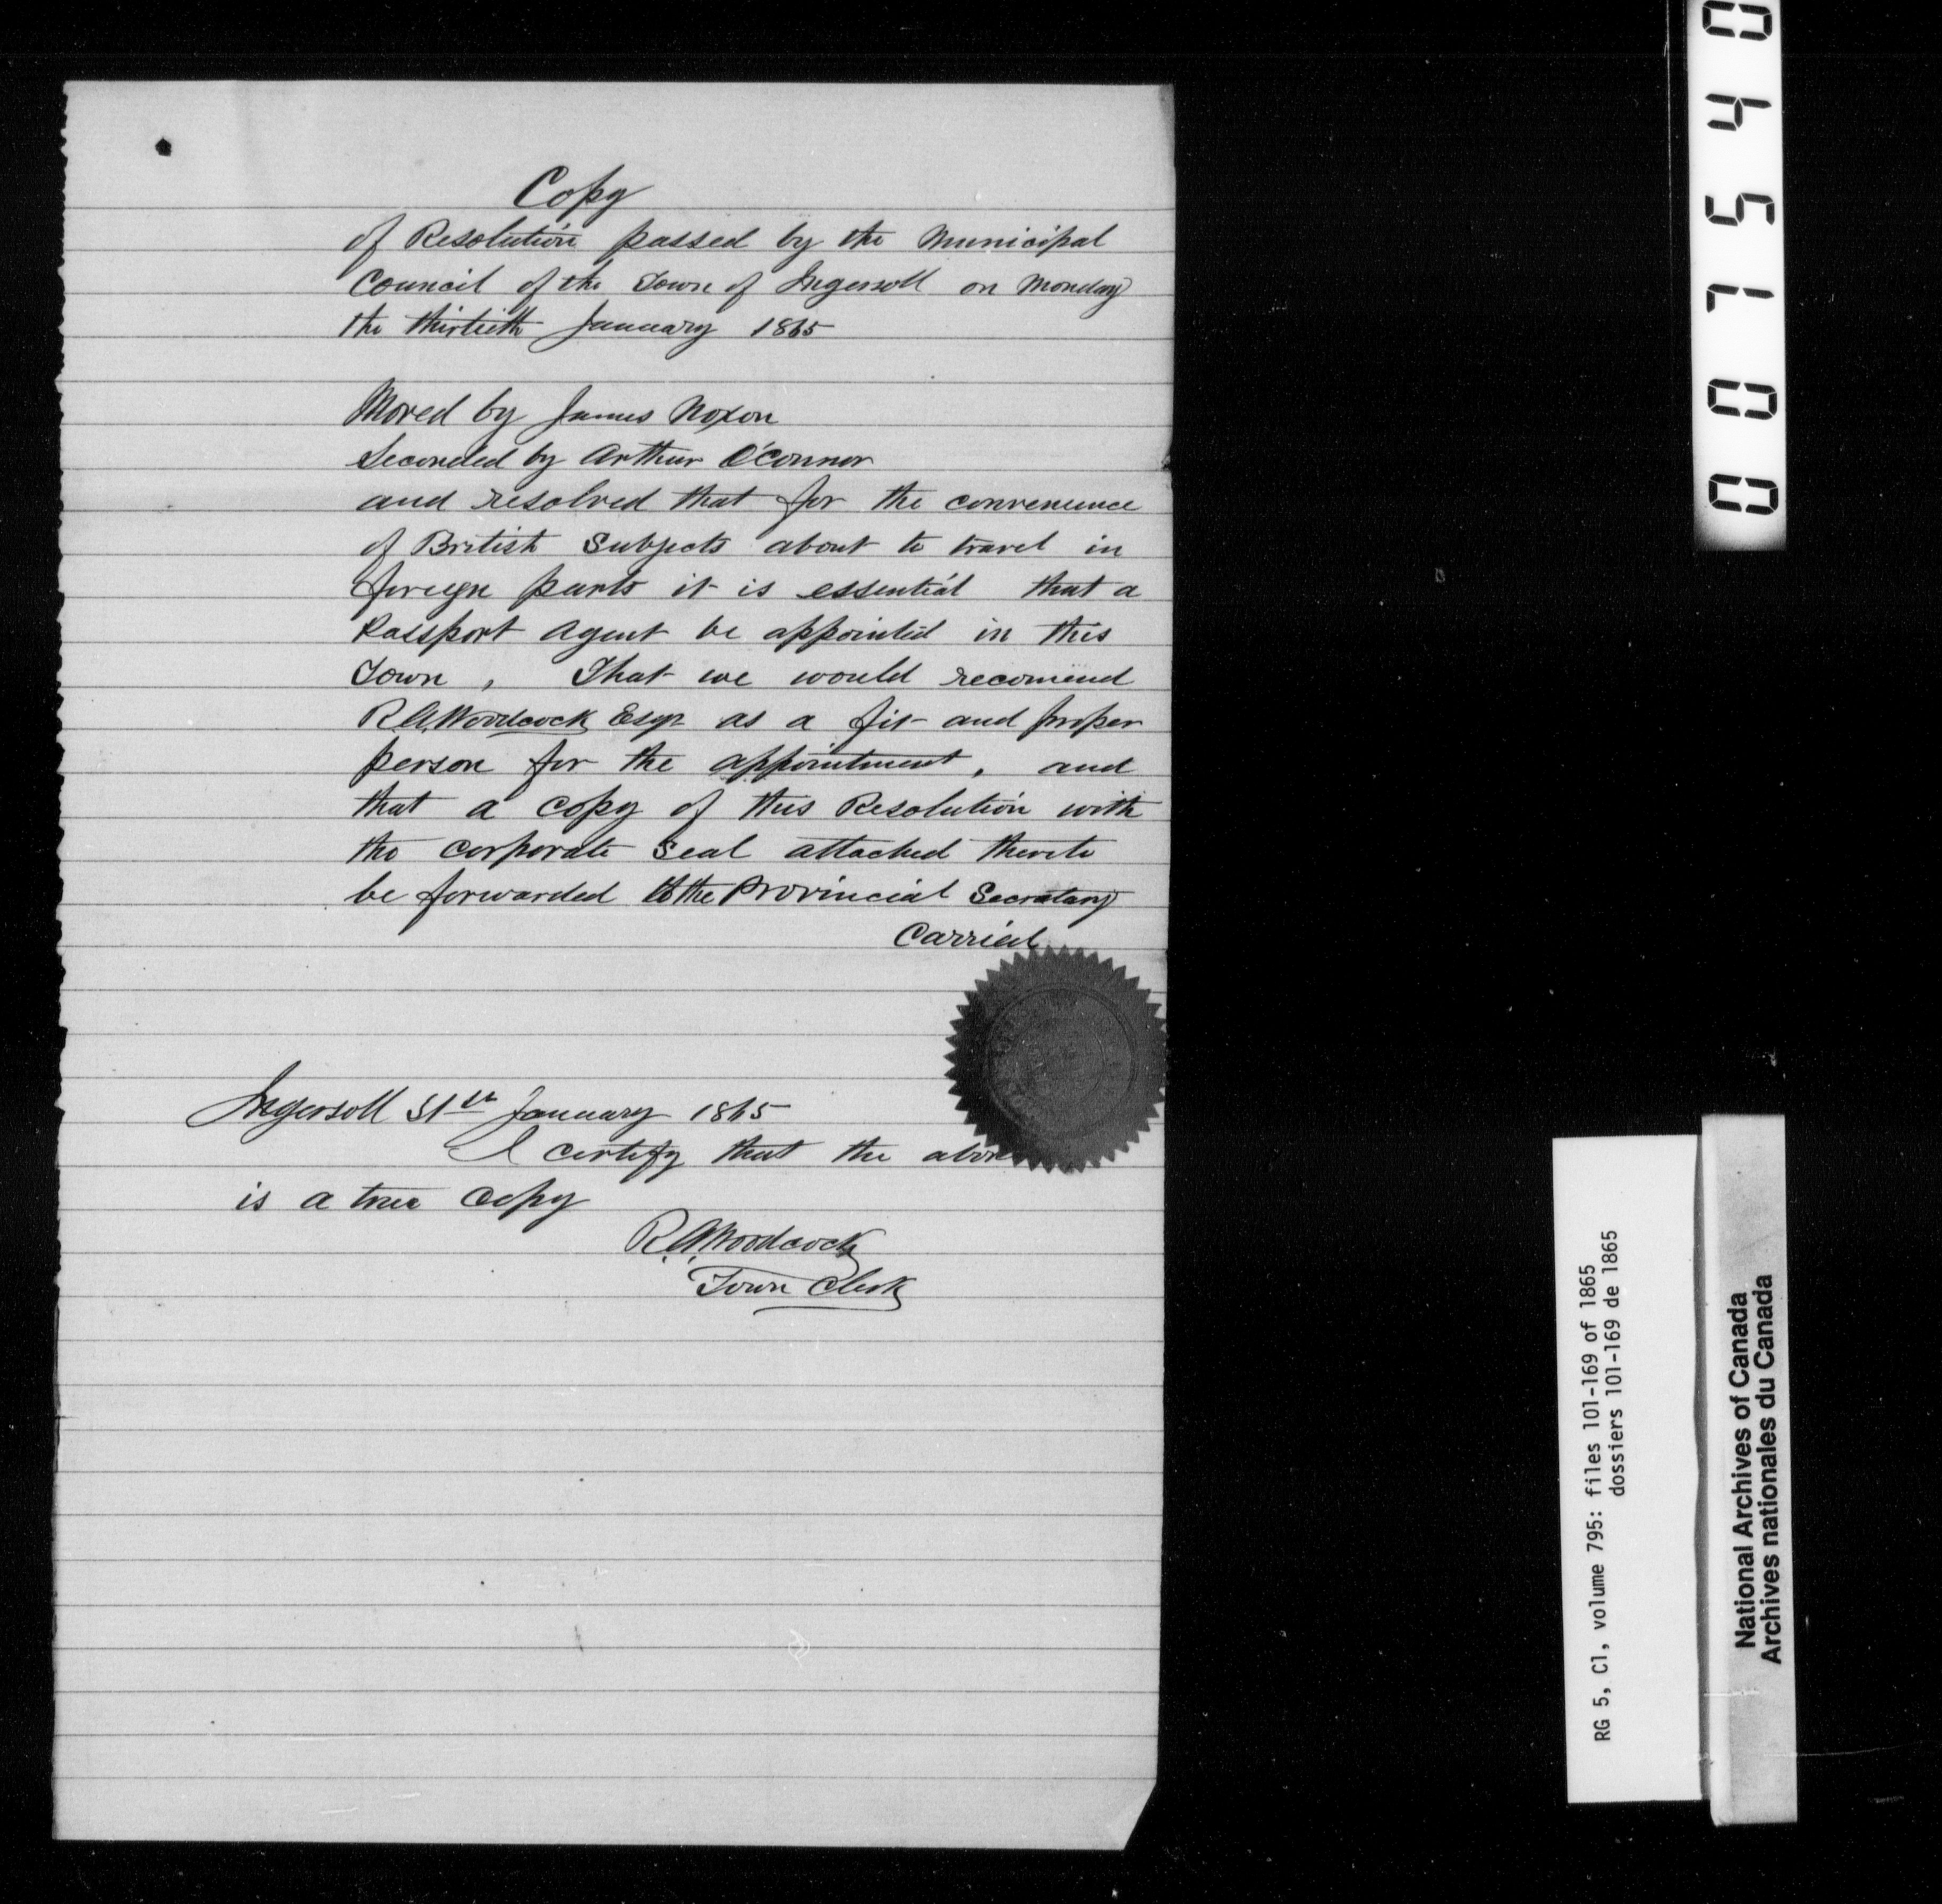 Copy
of Resolution passed by the Municipal
Council of the Town of Ingersoll on Monday
the thirtieth January 1865
Moved by James Noxon
Seconded by Arthur O'Connor
and resolved that for the convenience
of British Subjects about to travel in
foreign parts it is essential that a
Passport Agent be appointed in this
Town, That we would recomend
R.A. Woodcock Esqr as a fit and proper
person for the appointment, and
that a copy of this Resolution with
the corporate Seal attached thereto
be forwarded to the Provincial Secretary
Carried
Ingersoll 31st January 1865
I certify that the above
is a true Copy
R.A. Woodcock
Town Clerk
007540
RG 5, C1, volume 795: files 101-169 of 1865
dossiers 101-169 de 1865
National Archives of Canada
Archives nationales du Canada